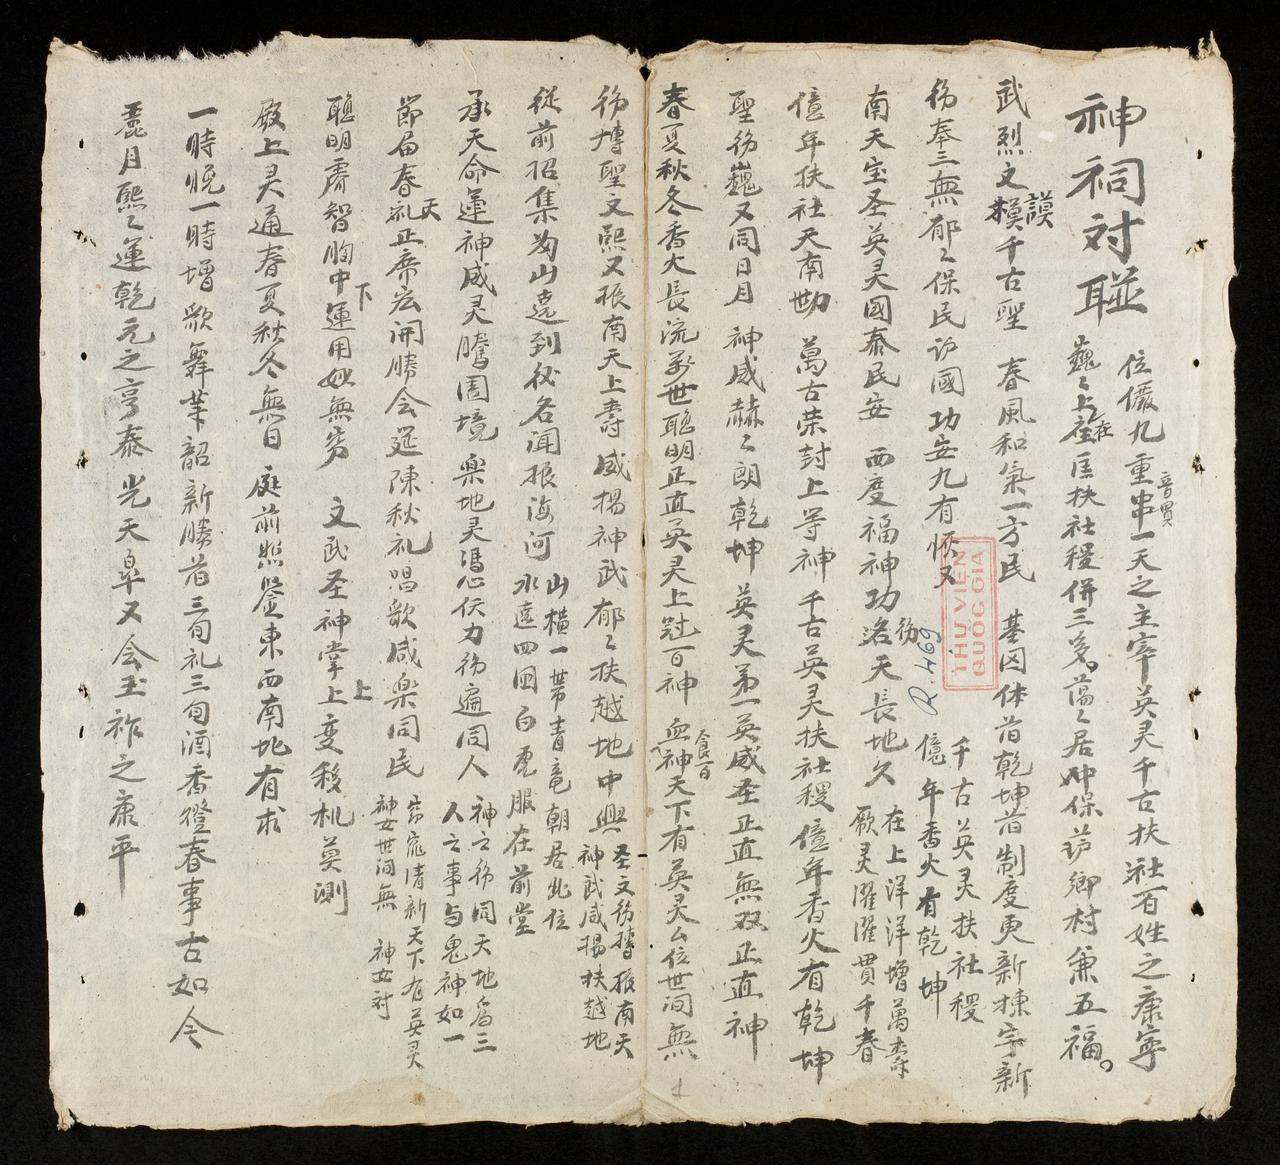 神祠対聯
位儼九重串一天之主宰英灵千古扶社百姓之康寧
音貫
巍〻上座匡扶社稷併三多。蕩〻居姒保护鄉村兼五福。
在
武烈文模千古聖 春風和氣一方民 基因体旹乾坤旹制度更新揀宇新
謨
彷奉三無郁〻保民护國功安九有恢又
千古英灵扶社稷
億年香火有乾坤
南天宝圣英灵國泰民安 西度福神功洛天長地久
彷
在上洋洋增萬寿
厥灵濯濯貫千春
億年扶社天南坳 萬古荣封上等神 千古英灵扶社稷億年香火有乾坤
聖彷巍又同日月 神威赫〻朗乾坤 英灵弟一英威圣正直無双正直神
春夏秋冬香火長流万世聪明正直英灵上冠百神 血神天下有英灵公位世间無
食百
彷摶聖文熙又振南天上壽威揚神武郁〻扶越地中興
圣文彷摶振南天
神武威揚扶越地
従前招集匆山遠到必名闻振海河
山橫一带青竜朝居此位
水遶四囬白虎服在前堂
承天命運神威灵騰圄境樂地灵馮心仗力彷遍同人
神之彷同天地爲三
人之事与鬼神如一
節届春礼正席宏開勝会筵陳秋礼唱歌咸樂同民
天
窈窕清新天下有英灵
神女世间無 神女対
聪明睿智胸中運用妙無穷 文武圣神掌上变移机莫測
下
上
殿上灵通春夏秋冬無日 庭前照鉴東西南北有求
一時悦一時增歌舞業韶新勝旹三旬礼三旬酒香燈春事古如今
麗月熙〻運乾元之亨泰光天皐又会玉祚之康平
R.469
THƯ VIỆN
QUỐC GIA